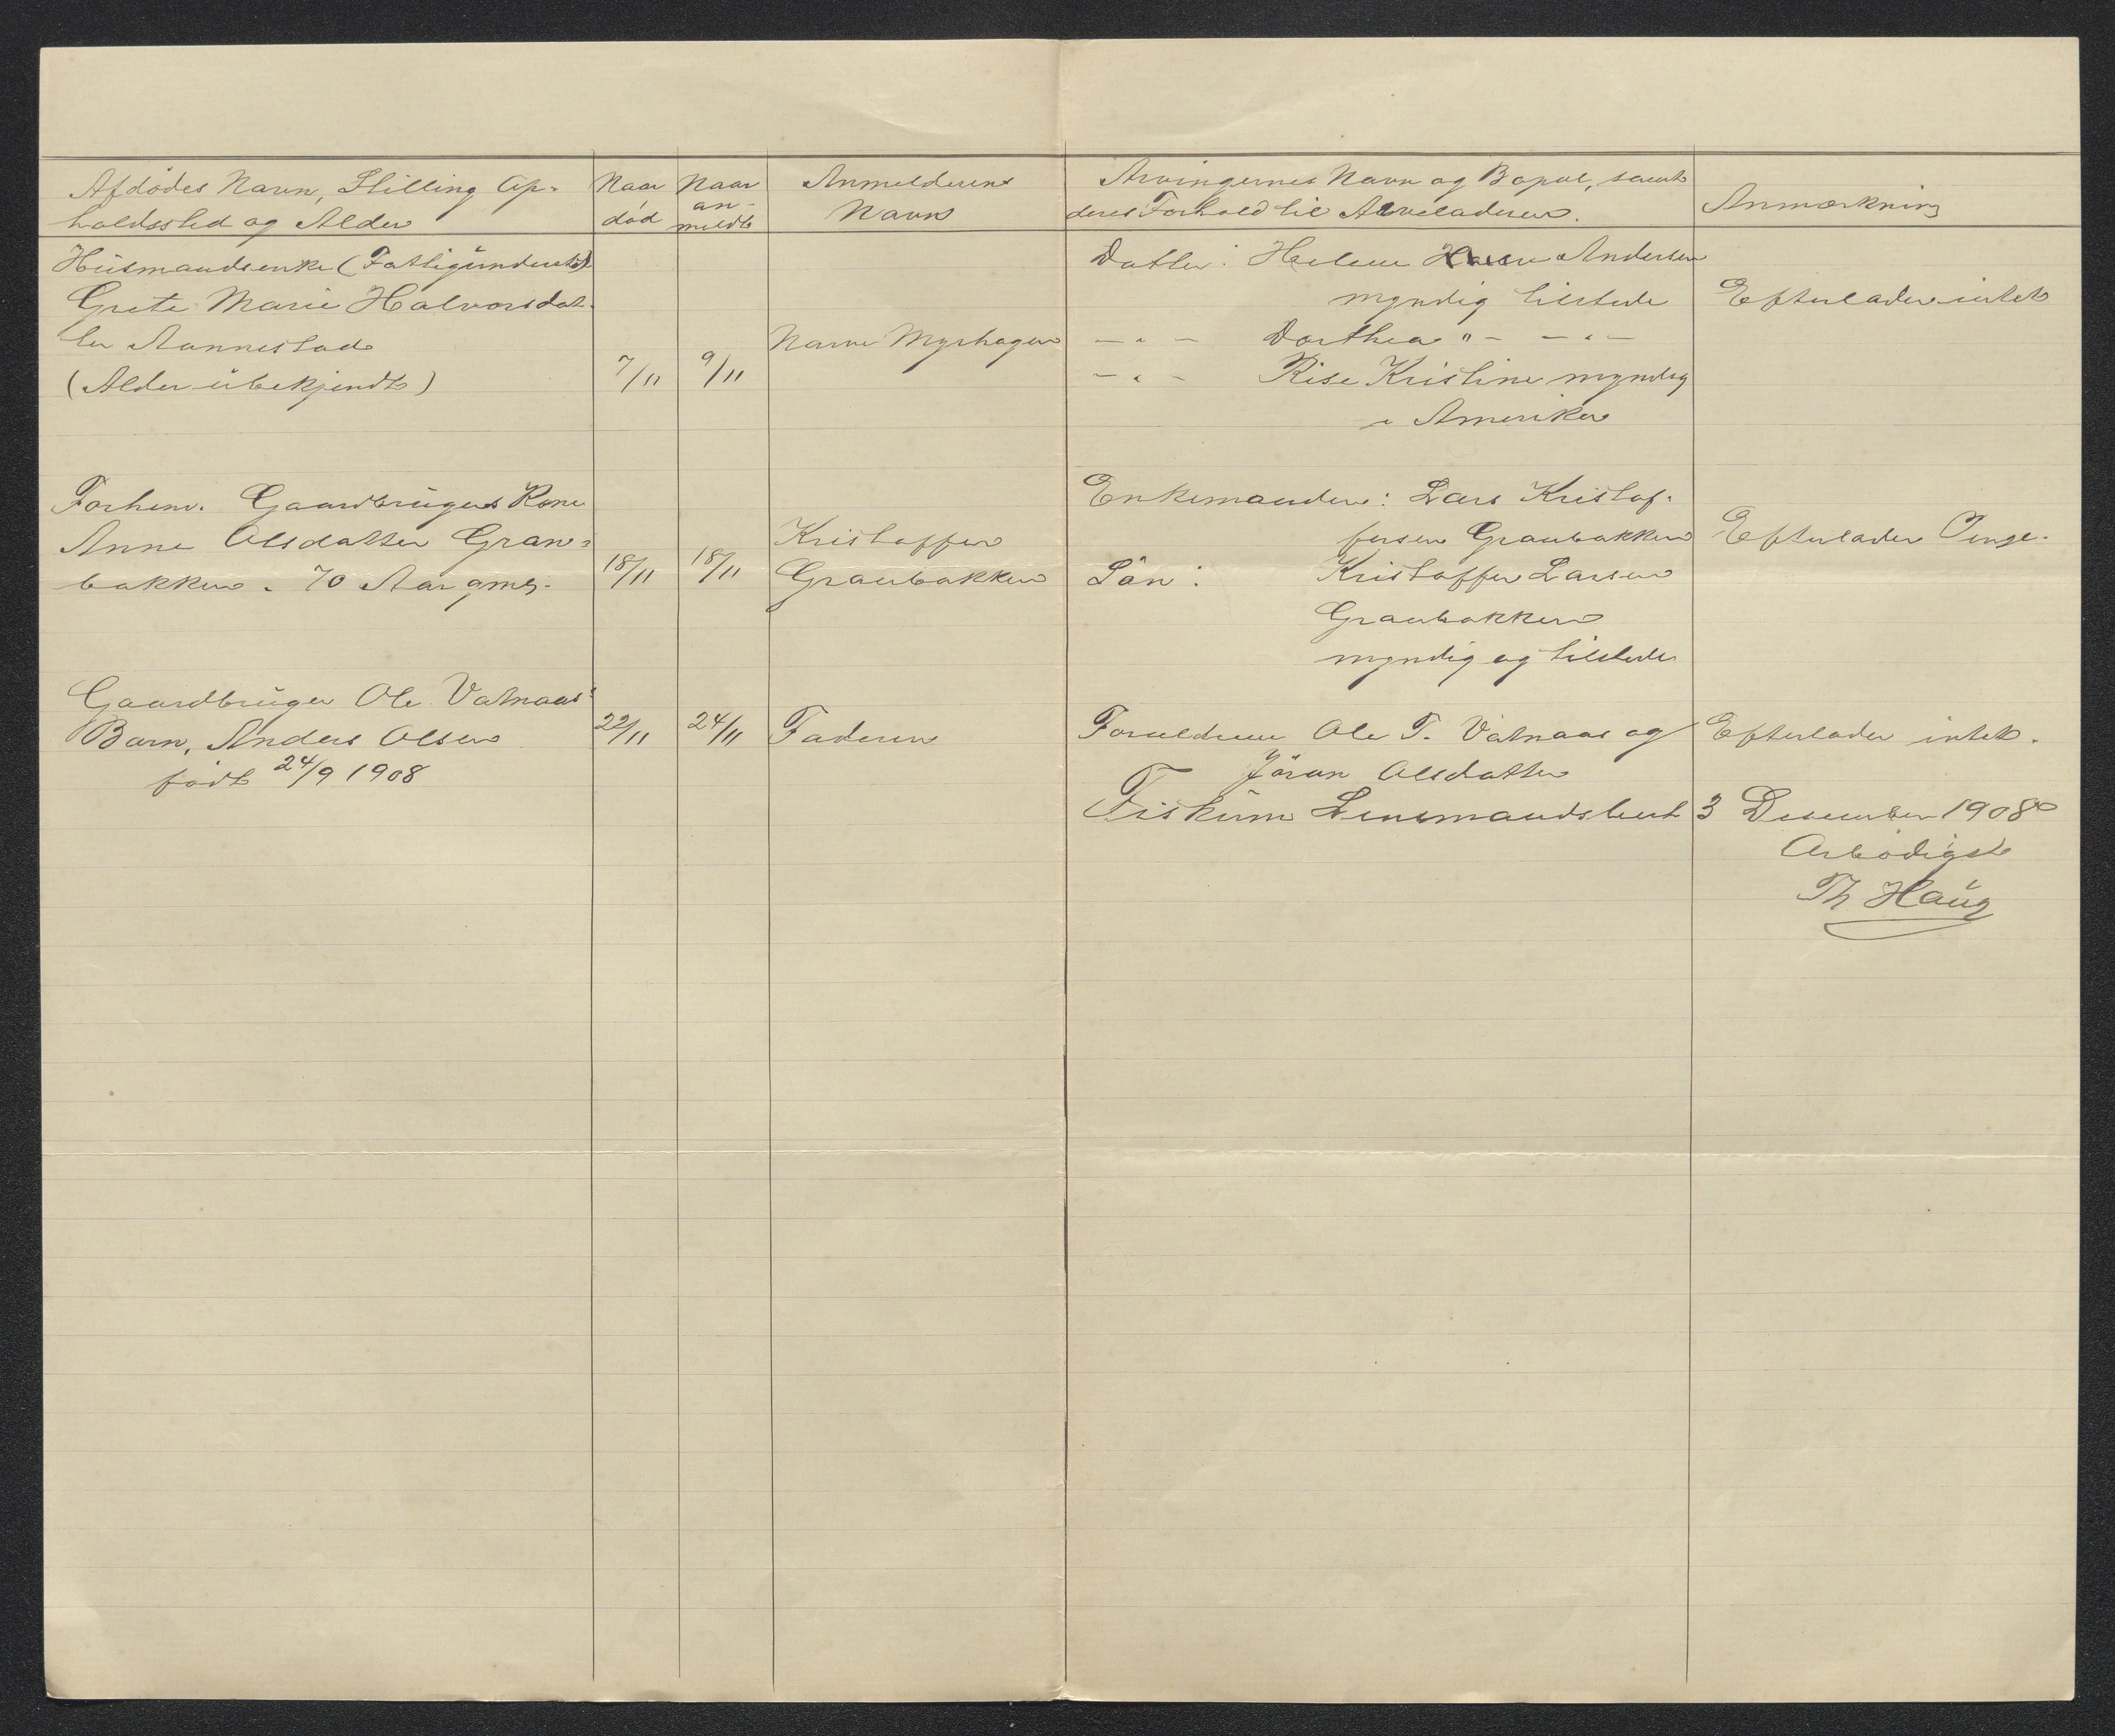 Afdödes Navn, Stilling Op-
holdssted og Alder
Naar
död
Naar
an-
meldt
Anmelderens
Navn
Arvingernes Navn og Bopæl, samt
deres Forhold til Arveladeren.
Anmærkning
Husmandsenke (Fattigunderst.)
Grete Marie Halvorsdat-
ter Aannestad
(Alder ubekjendt)
7/11
9/11
Narve Myrhagen
Datter: Helene Andersen
myndig tilstede
— " — Dorthea " — — " —
— " — Rise Kristine myndig
i Amerika
Efterlader intet
Forhenv. Gaardbrugers Kone
Anne Olsdatter Gran-
bakken. 70 Aar gml.
18/11
18/11
Kristoffer
Granbakken
Enkemanden: Lars Kristof-
fersen Granbakken
Sön: Kristoffer Larsen
Granbakken
myndig og tilstede
Efterlader Penge.
Gaardbruger Ole Vatnaas'
Barn, Anders Olsen
födt 24/9 1908
22/11
24/11
Faderen
Forældrene Ole T. Vatnaas og
Jöran Olsdatter
Efterlader intet.
Fiskum Lensmandsbest 3 Desember 1908
Ærbödigst
Th Haug